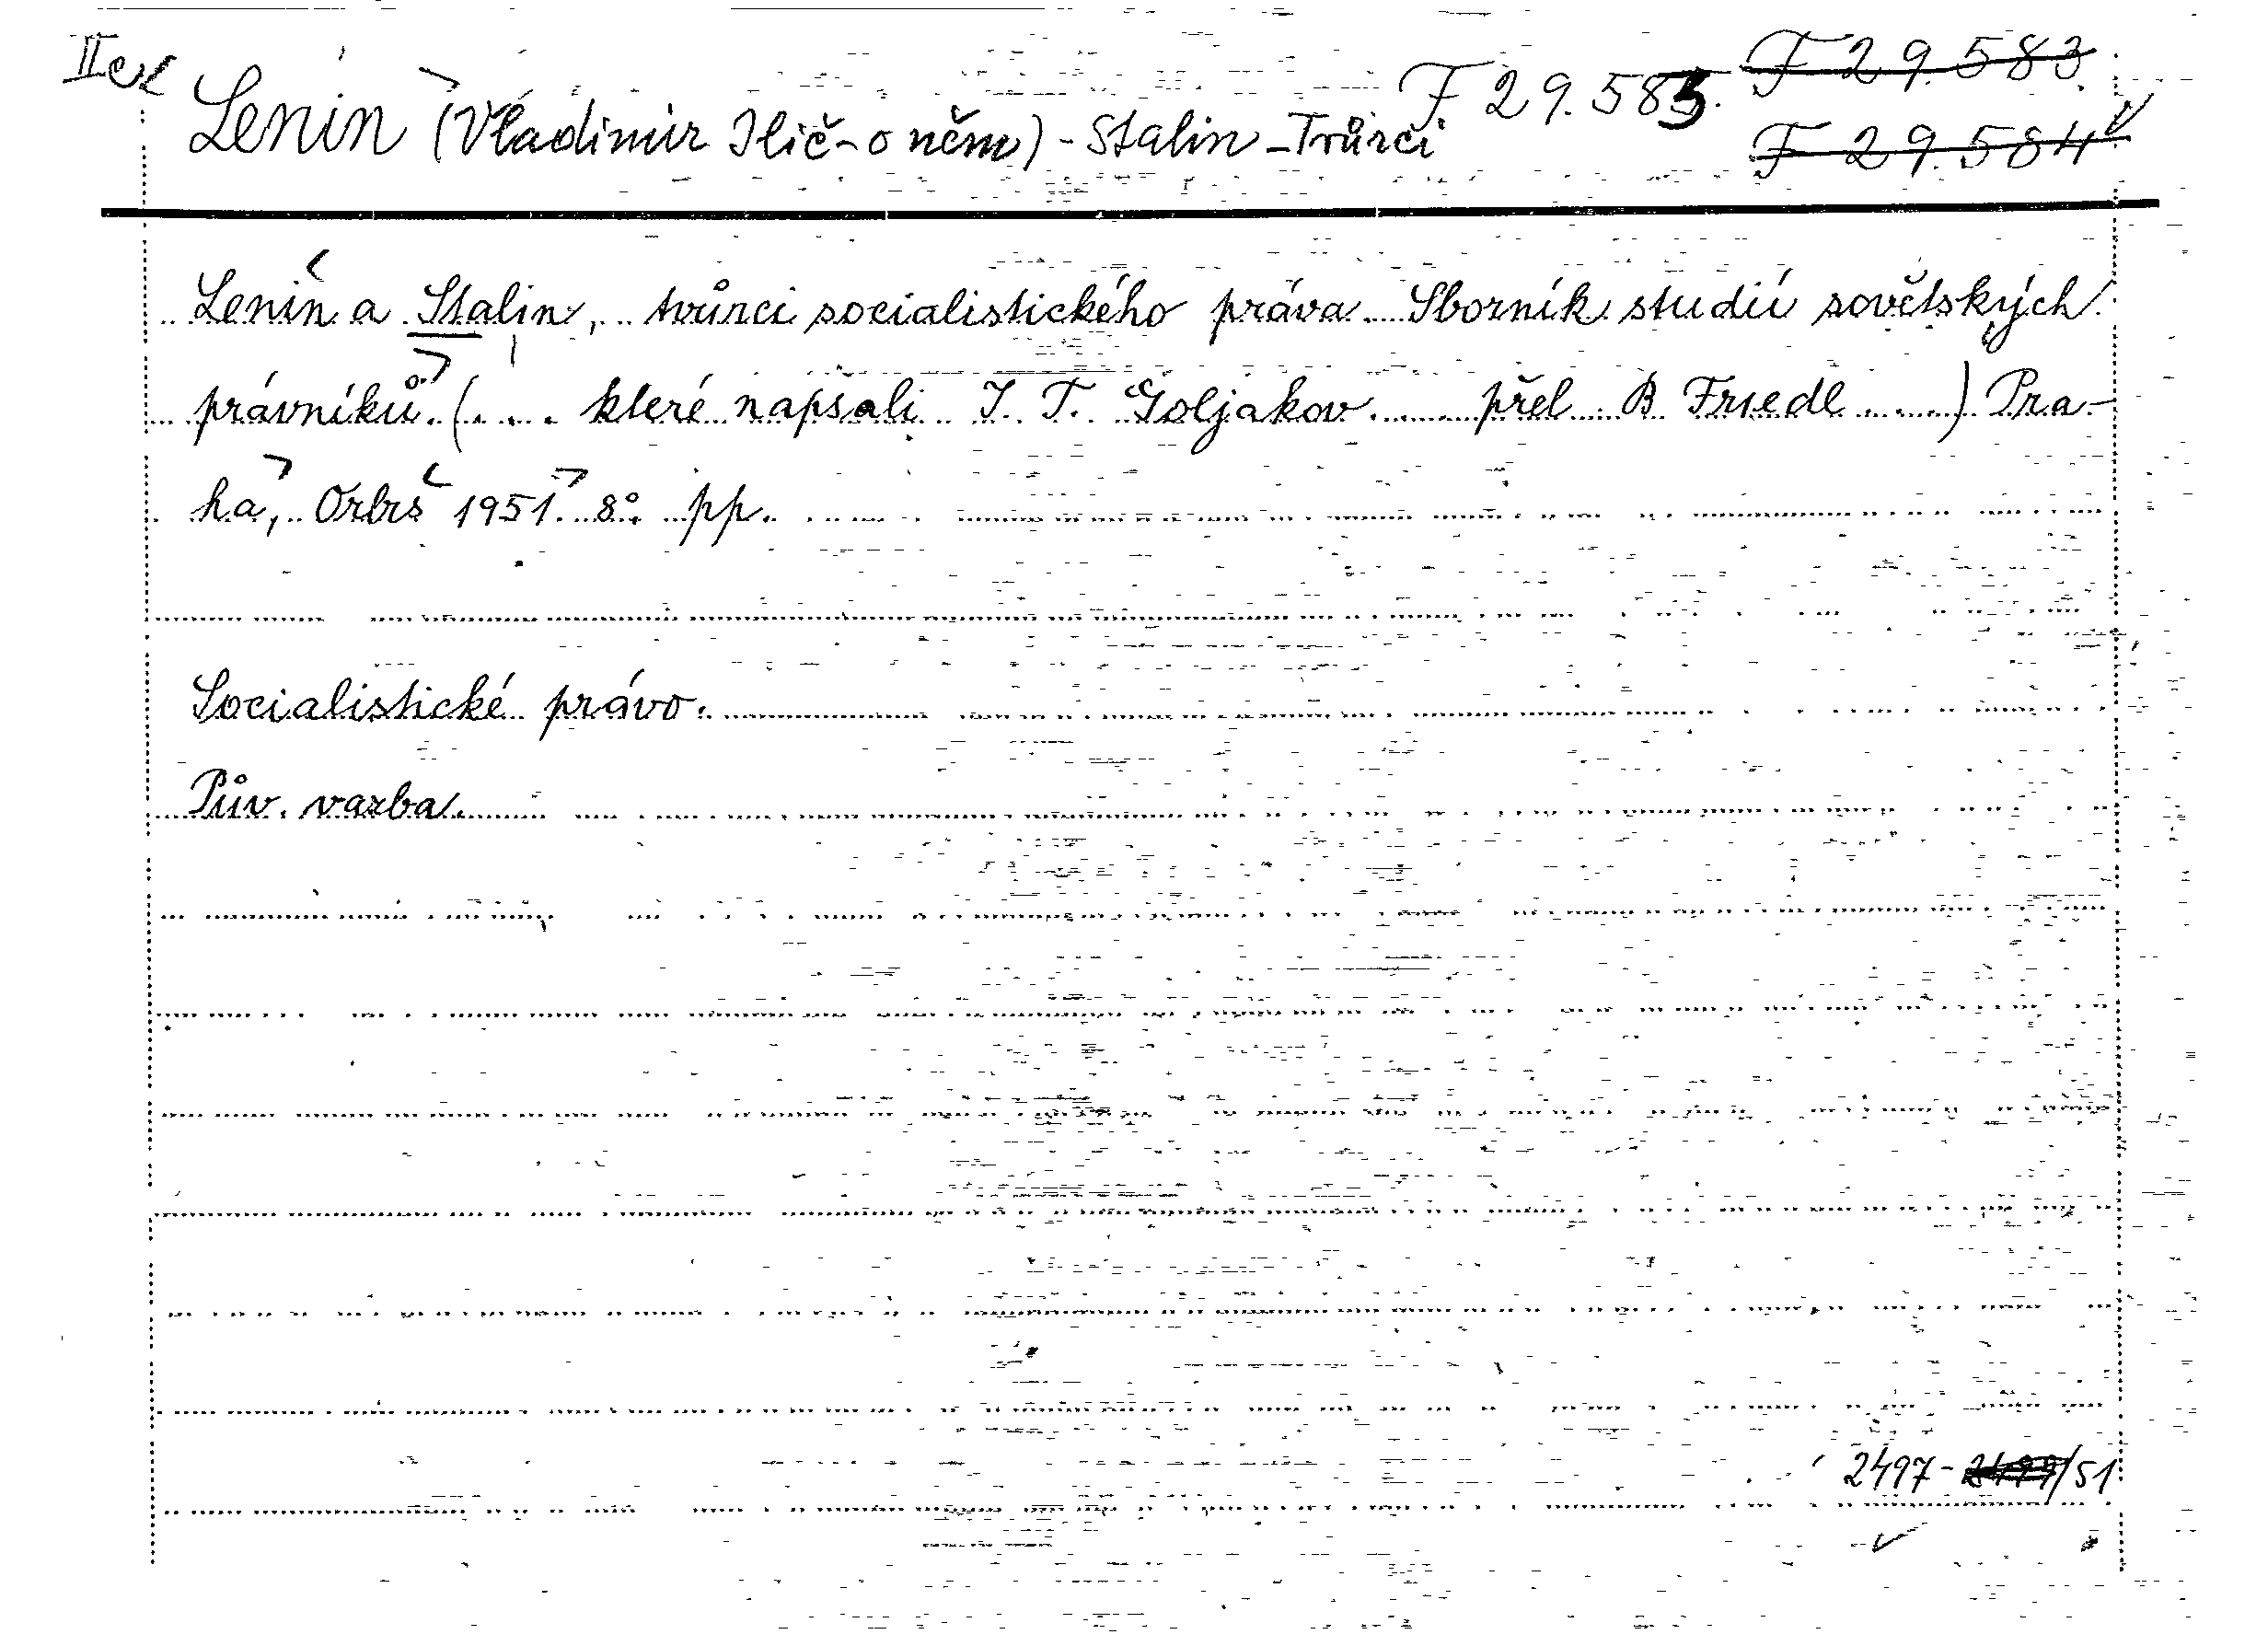 IIe
F 29.583
Lenin (Vladimir Iljič - o něm) - Stalin - Tvůrci F 29.585.
F 29.584
Lenin a Stalin, tvůrci socialistického práva. Sborník studií sovětských
právníků. (.... které napsali I. T. Goljakov ..... přel. B. Friedl .....) Pra-
ha, Orbis 1951. 8° pp.
Socialistické právo.
Pův. vazba.
2497 - 2499/51